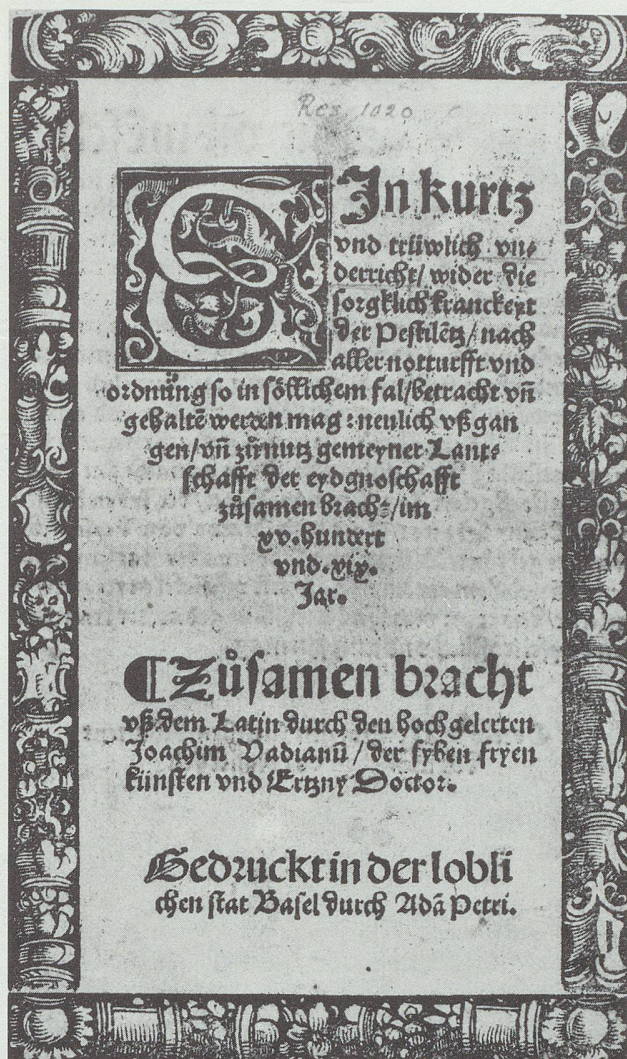 Res 1020
EIn kurtz
vnd trüwlich vn⸗
derricht/ wider die
sorgklich kranckeyt
der Pestilētz/ nach
aller notturfft vnd
ordnūng so in söllichem fal/betracht vñ
gehaltē werden mag : neulich vß gan
gen/ vñ zůnutz gemeyner Lant⸗
schafft der eydgnoschafft
zůsamen bracht/ im
xv. hundert
vnd. xix.
Jar.
¶ Zůsamen bracht
vß dem Latin durch den hochgelerten
Joachim Vadianū / der syben fryen
künsten vnd Ertzny Doctor.
Gedruckt in der lobli
chen stat Basel durch Adā Petri.